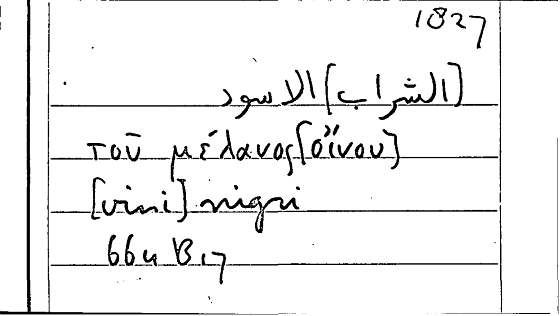 1827
[الشراب] الاسود
τοῦ μέλανος [οἴνου]
[vini] nigri
66u B17